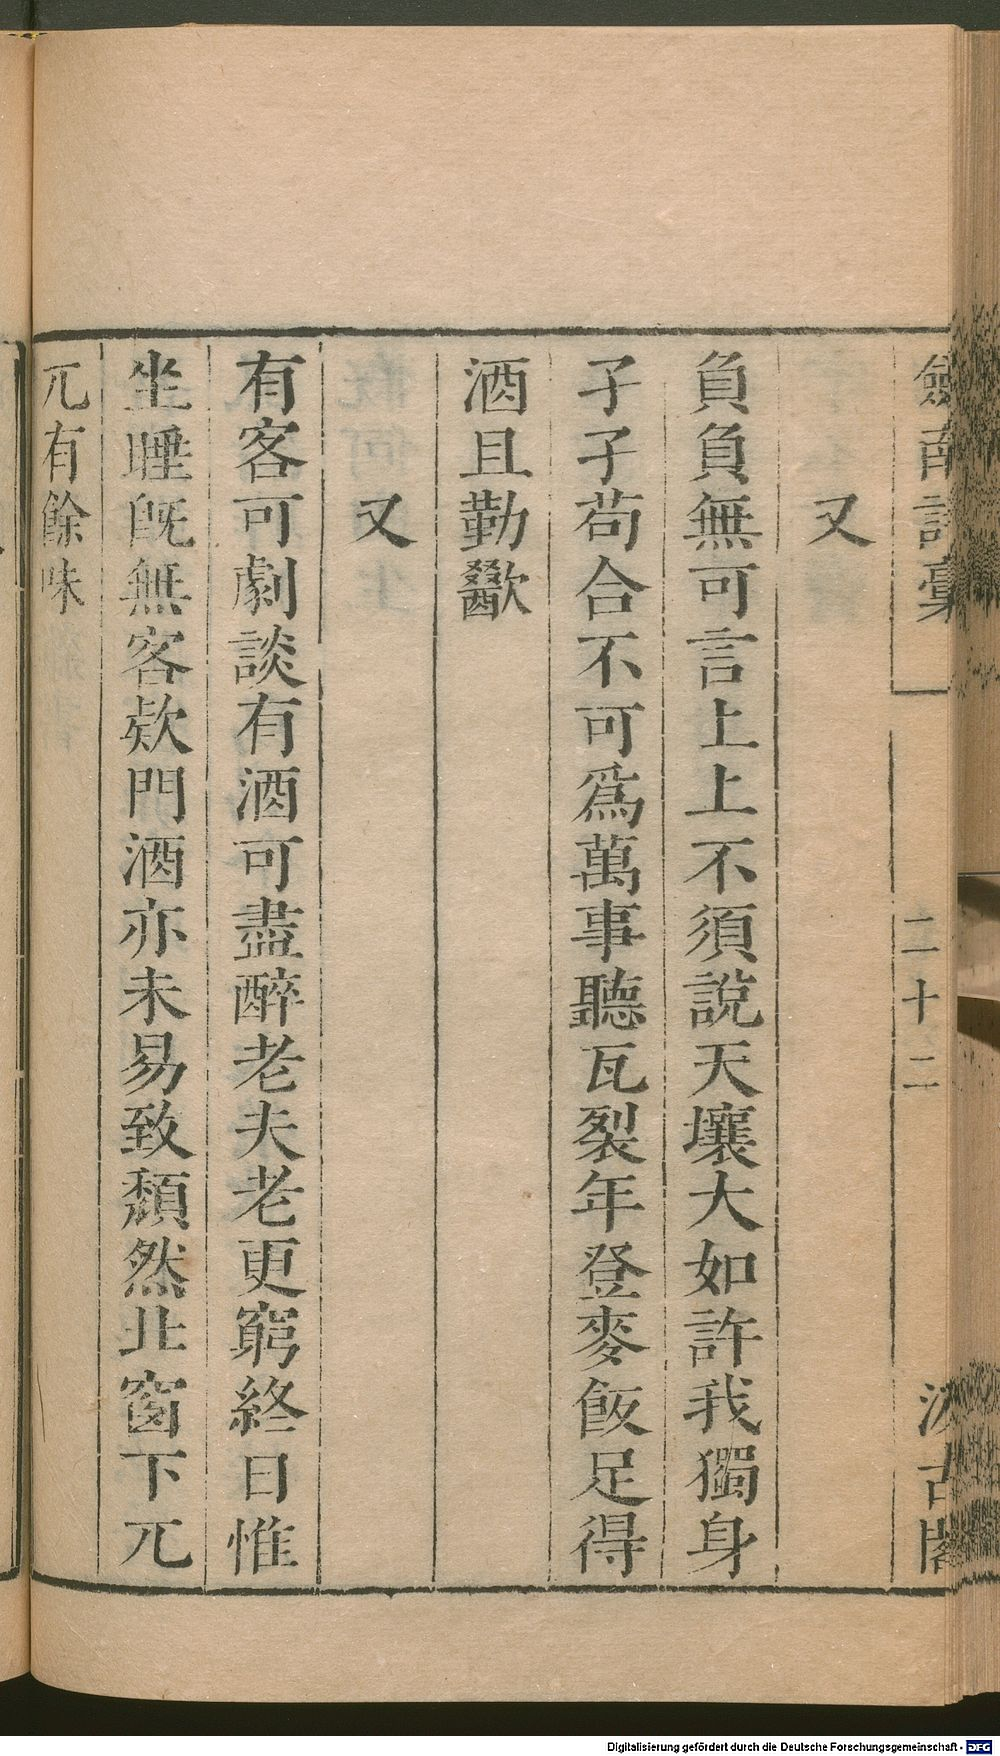 劍南詩稾 二十二 汲古閣
又
負負無可言上上不須說天壤大如許我獨身
孑孑苟合不可爲萬事聽瓦裂年登麥飯足得
酒且勤歠
又
有客可劇談有酒可盡醉老夫老更窮終日惟
坐睡旣無客欵門酒亦未易致頽然北窗下兀
兀有餘味
Digitalisierung gefördert durch die Deutsche Forschungsgemeinschaft - DFG